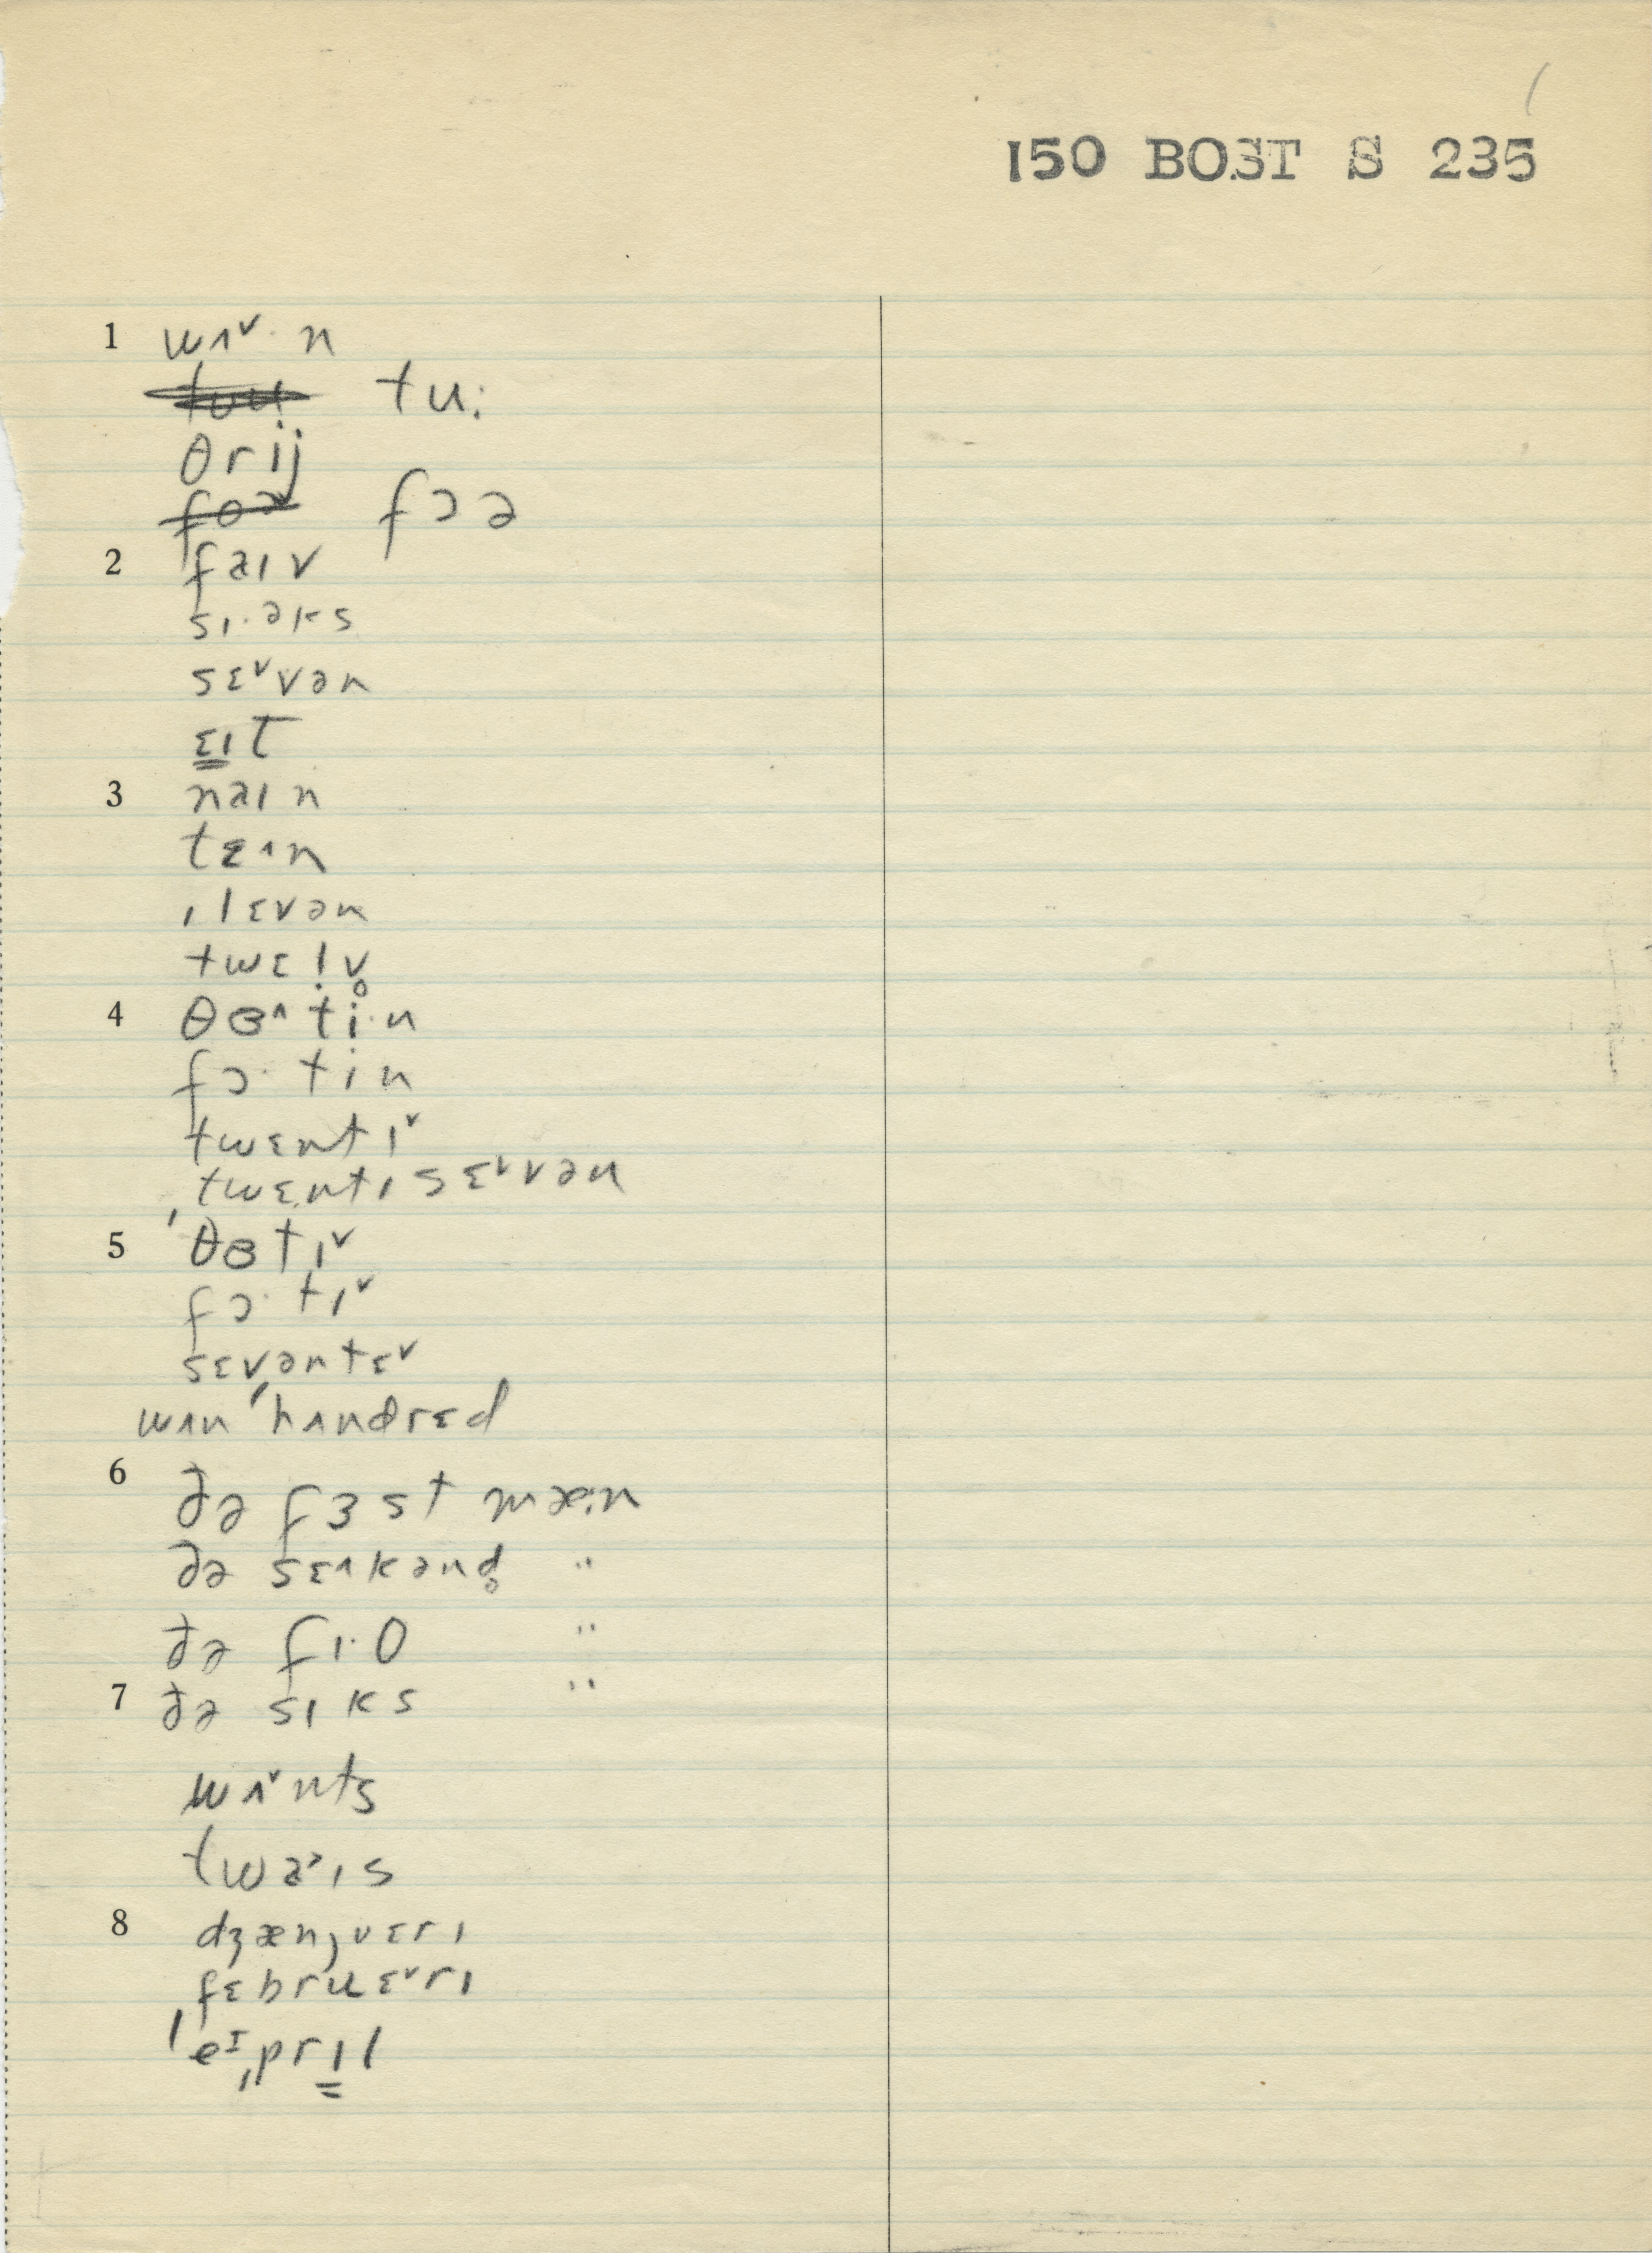 150 BOST S 235
1 wʌ˅· n
tu:
θrij
fɔə
2 faɪv
sɪ·əks
sɛ˅vən
ɛɪt
3 naɪn
tɛ˄n
ɪlɛvən
twɛl̩v̥
4 θɞ˄ti·n
fɔ· tin
twɛntɪ˅
ˌtwɛntɪ sɛ˅vən
5 ˈθɞtɪ˅
fɔ· tɪ˅
sɛvəntɛ˅
wʌnˌˈhʌndrɛd
6 ðə fɜst mæ:n
ðə sɛ˄kənd̥ "
ðə fɪ·θ "
7 ðə sɪks "
wʌ˅nts
twa˃ɪs
8 dʒænˌjʊɛrɪ
fɛbruɛ˅rɪ
ˈeᴵˌprɪl